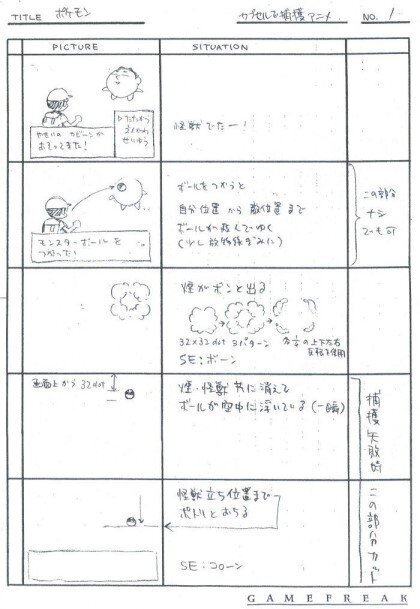 TITLE ポケモン カプセルで捕獲アニメ NO. 1
PICTURE SITUATION
やせいの カビーンが
おそってきた!
▷たたかう
どうぐ
せいゆう
怪獣でたー!
モンスターボール を
つかった!
ボールをつかうと
自分位置 から 敵位置 まで
ボールが飛んでゆく
(少し放物線ぎみに)
この部分
ナシ
でも可
煙がボンと出る
32×32dot 3パターン
各々の上下左右
反転を使用
SE:ボーン
画面上から 32dot
煙・怪獣 共に消えて
ボールが空中に浮いている (一瞬)
捕獲失敗時
怪獣立ち位置まで
ポトリとおちる
SE:コローン
この部分カット
GAMEFREAK